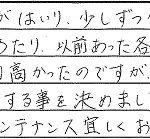 がはいり、少しずつ
ったり、以前あった各
高かったのですが、
する事を決めまし
ンテナンス宜しくお